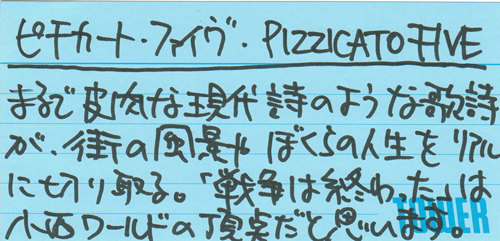 ピチカート・ファイヴ・PIZZICATO FIVE
まるで皮肉な現代詩のような歌詩
が、街の風景や ぼくらの人生を リアル
に切り取る。「戦争は終わった」は
小西ワールドの頂点だと思います。
TOWER